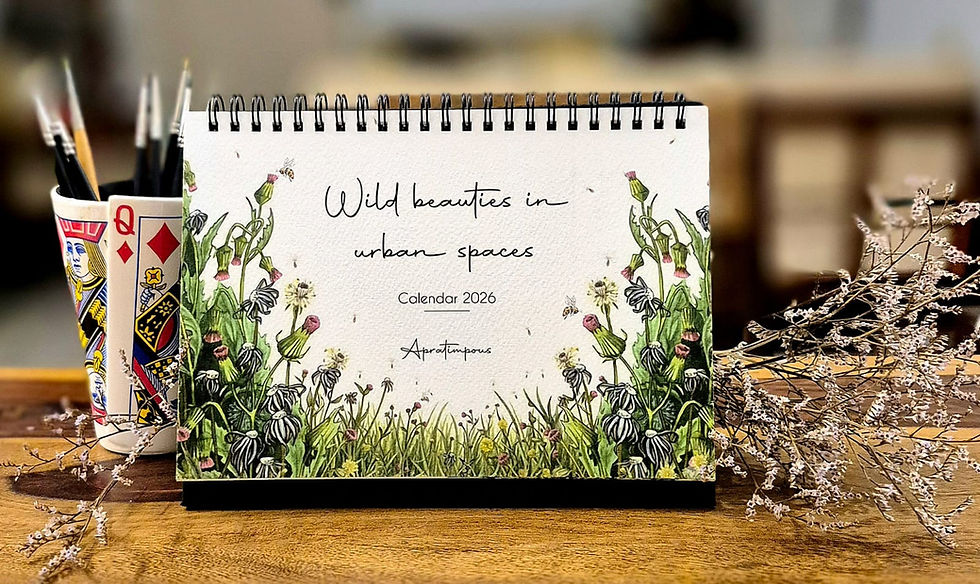 Q
Wild beauties in
urban spaces
Calendar 2026
Apratimpous